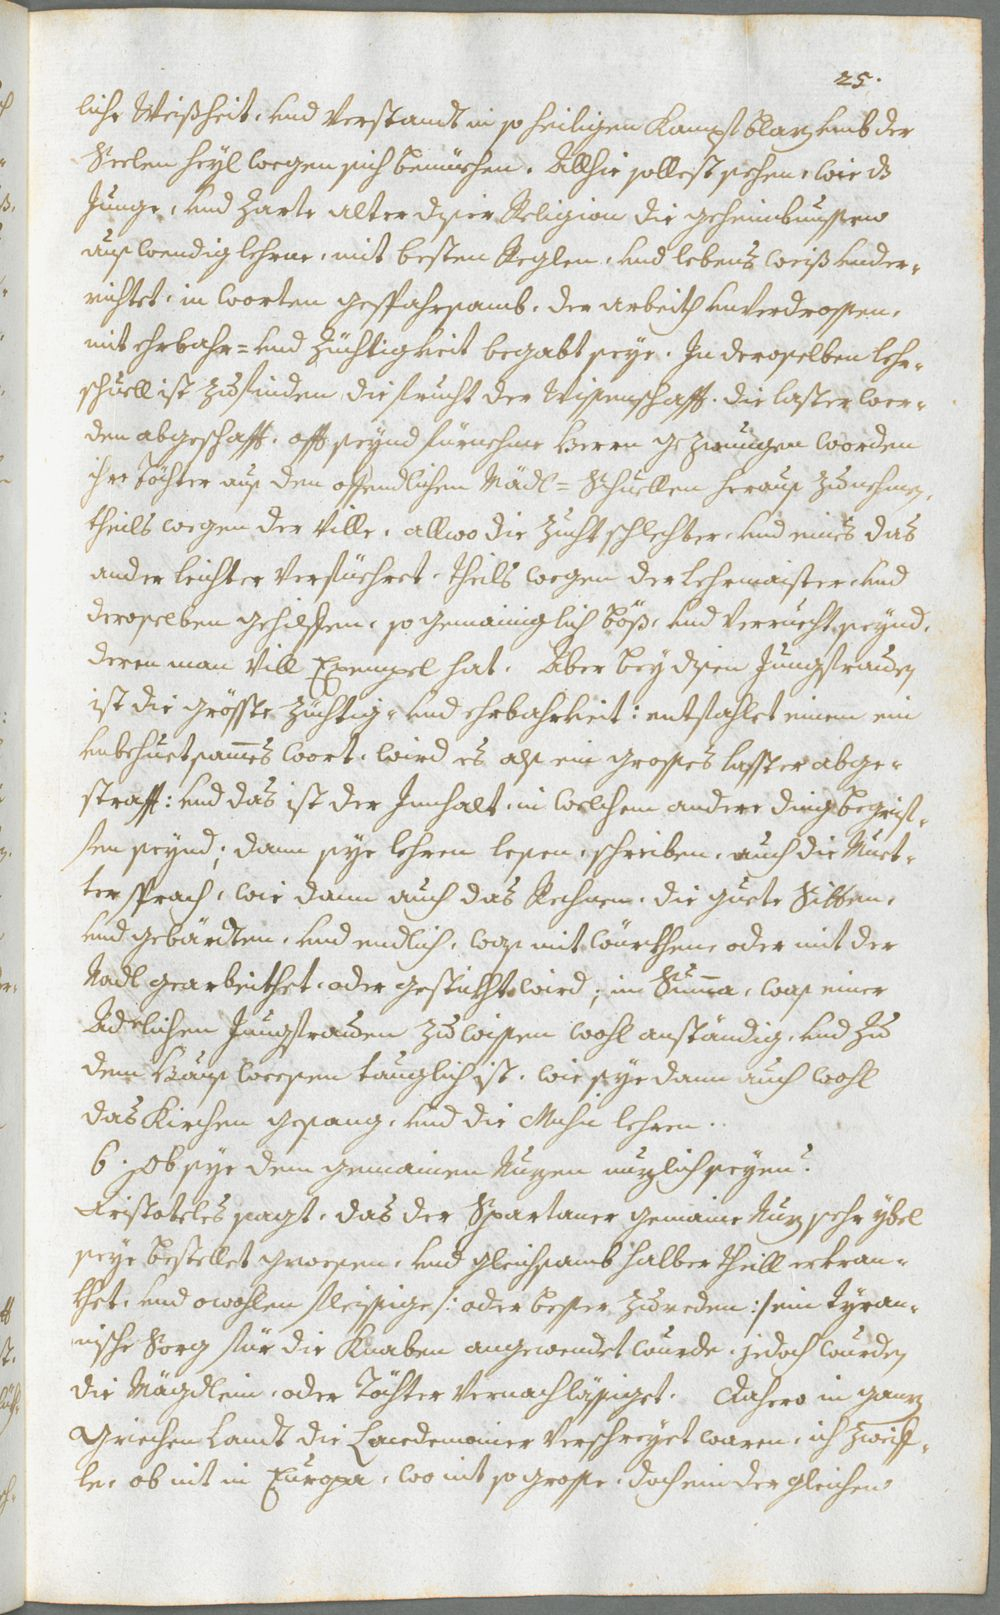 25.
liche Weißheit, und Verstandt in so heiligen Kampfblaz umb der
Seelen heyl wegen sich bemüehen. Allhie sollest sehen, wie d
Junge, und Zarte alter diser Religion die geheimbnussen
auswendig lehrne, mit besten Reglen, und lebens weiß under-
richtet, in worten gespahrsamb, der arbeith unverdrossen,
mit ehrbahr= und Züchtigkeit begabt seye. In deroselben lehr-
schuell ist zu finden die frucht der Wissenschafft. die laster wer-
den abgeschafft. offt seynd fürnehme Herrn gezwungen worden
ihre Töchter aus den offendlichen Mädl= Schuellen heraus zunehmen,
theils wegen der Ville, allwo die Zucht schlechter, und eines das
ander leichter Verfüehret, theils wegen der lehrmaister, und
deroselben gehilffen, so gemainiglich böß, und Verrucht seynd,
deren man Vill Exempel hat. Aber bey disen Jungfrauen
ist die gröste Züchtig- und ehrbahrkeit: entfahlet einen ein
unbehuetsames wort, wird es als ein grosses Laster abge-
strafft: und das ist der Innhalt, in welchem andere ding begrif-
fen seynd; dann sye lehren lesen, schreiben, auch die Muet-
ter sprach, wie dann auch das Rechnen, die guete Sitten,
und gebärdten, und endlich, was mit würkhen, oder mit der
Nadl gearbeithet, oder gestükht wird; in Summa, was einer
Adelichen Jungfrauen zu wissen wohl anständig, und zu
dem Haus weesen tauglich ist. wie sye dann auch wohl
das Kirchen gesang, und die Music lehren.
6. Ob sye dem gemainen Nuzen nuzlich seyen?
Aristoteles sagt, das der Spartaner gemaine Nuz sehr ybel
seye bestellet gweesen, und gleichsamb halber theill erkran-
khet, und owohlen fleissige /: oder besser zureden :/ ein Tyran-
nische Sorg für die Knaben angewendet wurde, jedoch wurden
die Mägdlein, oder Töchter Vernachlässiget. Dahero in ganz
Griechen Landt die Lacedemonier Verschreyet waren, ich zweiff-
le, ob nit in Europa, wo nit so grosse, doch ein der gleichen